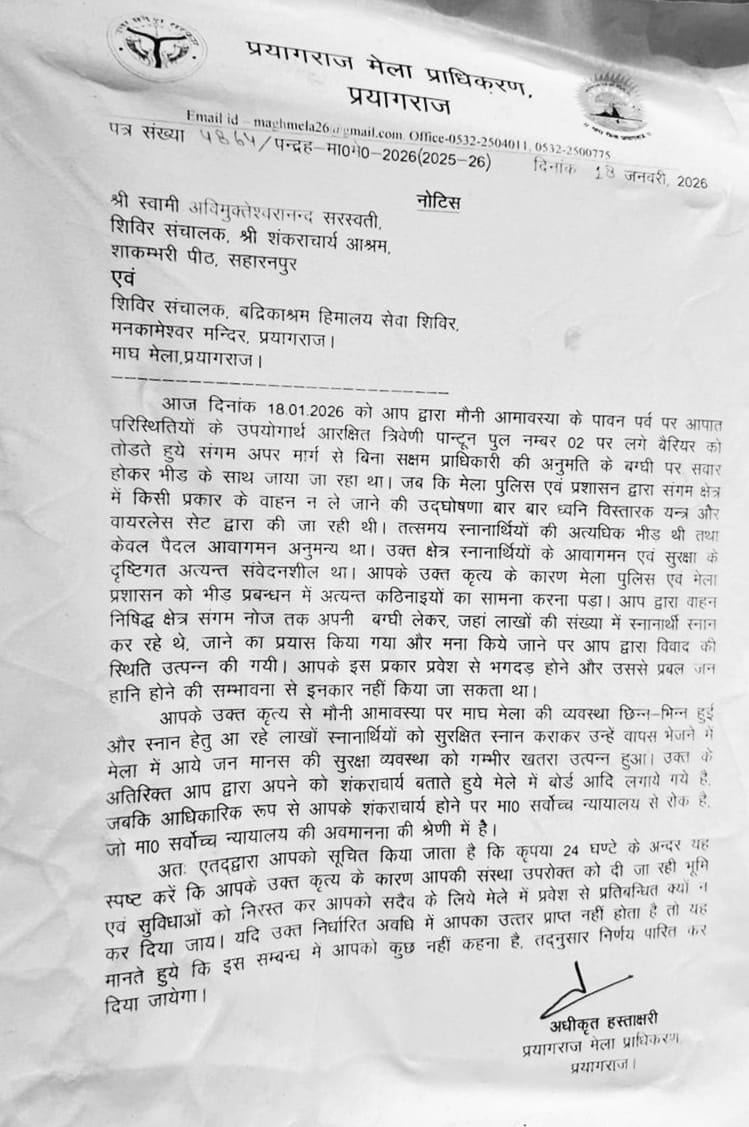 प्रयागराज मेला प्राधिकरण,
प्रयागराज
Email id – maghmela26@gmail.com, Office-0532-2504011, 0532-2500775
पत्र संख्या 4864/पन्द्रह-मा0मे0-2026(2025-26) दिनांक 18 जनवरी, 2026
नोटिस
श्री स्वामी अविमुक्तेश्वरानन्द सरस्वती,
शिविर संचालक, श्री शंकराचार्य आश्रम,
शाकम्भरी पीठ, सहारनपुर
एवं
शिविर संचालक, बद्रिकाश्रम हिमालय सेवा शिविर,
मनकामेश्वर मन्दिर, प्रयागराज।
माघ मेला,प्रयागराज।
आज दिनांक 18.01.2026 को आप द्वारा मौनी आमावस्या के पावन पर्व पर आपात
परिस्थितियों के उपयोगार्थ आरक्षित त्रिवेणी पान्टून पुल नम्बर 02 पर लगे बैरियर को
तोडते हुये संगम अपर मार्ग से बिना सक्षम प्राधिकारी की अनुमति के बग्घी पर सवार
होकर भीड के साथ जाया जा रहा था। जब कि मेला पुलिस एवं प्रशासन द्वारा संगम क्षेत्र
में किसी प्रकार के वाहन न ले जाने की उद्घोषणा बार बार ध्वनि विस्तारक यन्त्र और
वायरलेस सेट द्वारा की जा रही थी। तत्समय स्नानार्थियों की अत्यधिक भीड़ थी तथा
केवल पैदल आवागमन अनुमन्य था। उक्त क्षेत्र स्नानार्थियों के आवागमन एवं सुरक्षा के
दृष्टिगत अत्यन्त संवेदनशील था। आपके उक्त कृत्य के कारण मेला पुलिस एवं मेला
प्रशासन को भीड़ प्रबन्धन में अत्यन्त कठिनाइयों का सामना करना पड़ा। आप द्वारा वाहन
निषिद्ध क्षेत्र संगम नोज तक अपनी बग्घी लेकर, जहां लाखों की संख्या में स्नानार्थी स्नान
कर रहे थे, जाने का प्रयास किया गया और मना किये जाने पर आप द्वारा विवाद की
स्थिति उत्पन्न की गयी। आपके इस प्रकार प्रवेश से भगदड़ होने और उससे प्रबल जन
हानि होने की सम्भावना से इनकार नहीं किया जा सकता था।
आपके उक्त कृत्य से मौनी आमावस्या पर माघ मेला की व्यवस्था छिन्न-भिन्न हुई
और स्नान हेतु आ रहे लाखों स्नानार्थियों को सुरक्षित स्नान कराकर उन्हें वापस भेजने में
मेला में आये जन मानस की सुरक्षा व्यवस्था को गम्भीर खतरा उत्पन्न हुआ। उक्त के
अतिरिक्त आप द्वारा अपने को शंकराचार्य बताते हुये मेले में बोर्ड आदि लगाये गये है,
जबकि आधिकारिक रूप से आपके शंकराचार्य होने पर मा0 सर्वोच्च न्यायालय से रोक है,
जो मा0 सर्वोच्च न्यायालय की अवमानना की श्रेणी में है।
अतः एतद्द्वारा आपको सूचित किया जाता है कि कृपया 24 घण्टे के अन्दर यह
स्पष्ट करें कि आपके उक्त कृत्य के कारण आपकी संस्था उपरोक्त को दी जा रही भूमि
एवं सुविधाओं को निरस्त कर आपको सदैव के लिये मेले में प्रवेश से प्रतिबन्धित क्यों न
कर दिया जाय। यदि उक्त निर्धारित अवधि में आपका उत्तर प्राप्त नहीं होता है तो यह
मानते हुये कि इस सम्बन्ध मे आपको कुछ नहीं कहना है, तद्नुसार निर्णय पारित कर
दिया जायेगा।
अधीकृत हस्ताक्षरी
प्रयागराज मेला प्राधिकरण,
प्रयागराज।